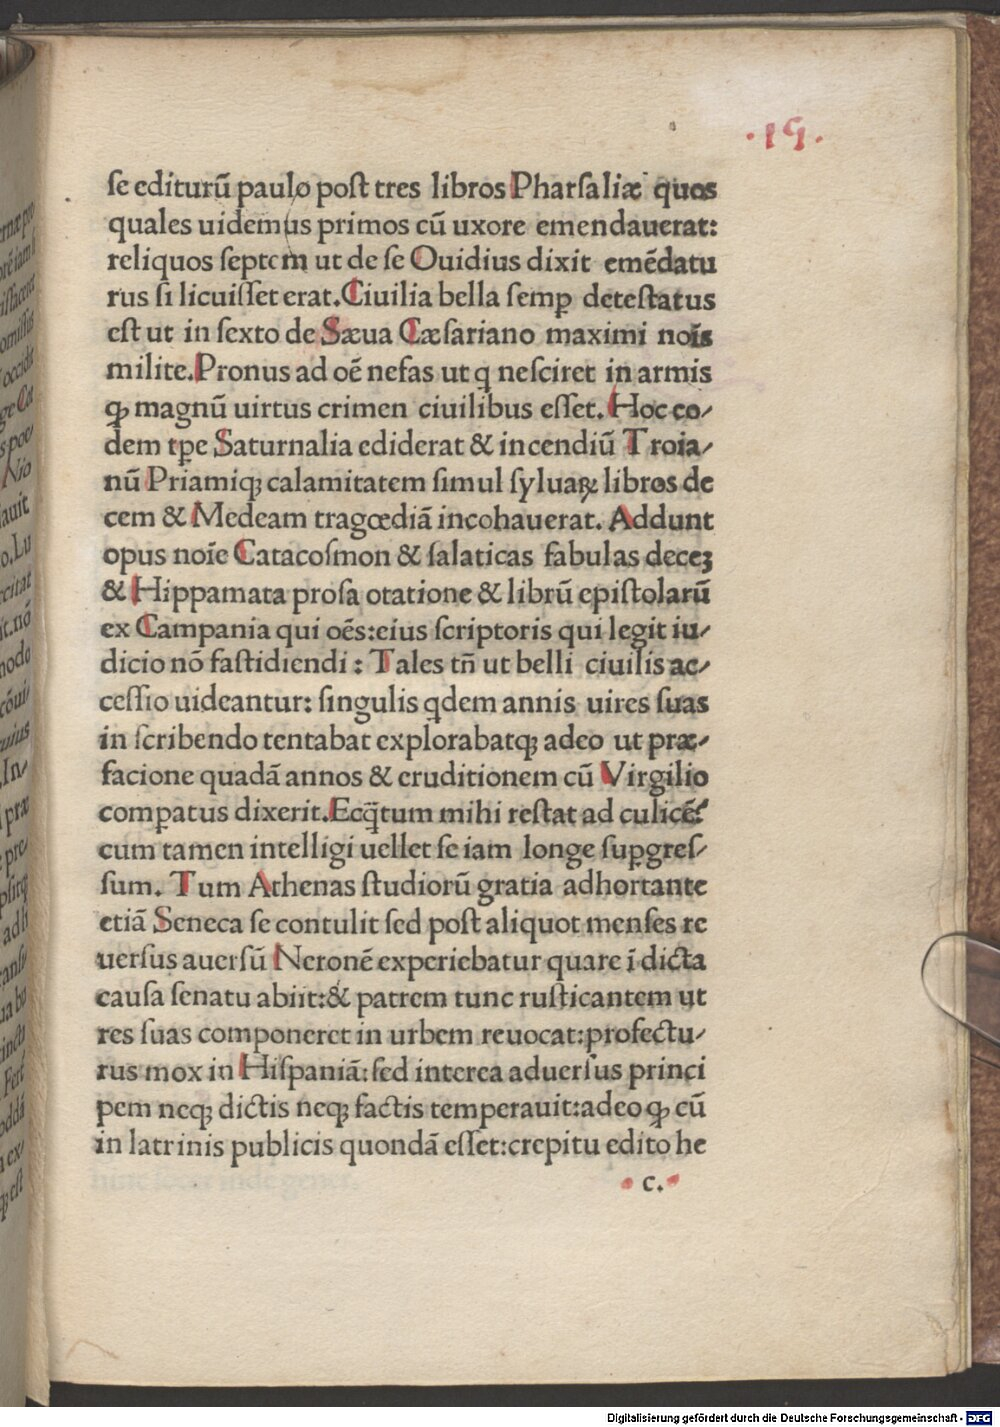 ·19·
se editurū paulo post tres libros Pharsaliæ quos
quales uidemus primos cū uxore emendauerat:
reliquos septem ut de se Ouidius dixit emēdatu
rus si licuisset erat. Ciuilia bella semꝑ detestatus
est ut in sexto de Sæua Cæsariano maximi noīs
milite. Pronus ad oē nefas ut q nesciret in armis
ꝙ magnū uirtus crimen ciuilibus esset. Hoc eo⸗
dem tꝑe Saturnalia ediderat & incendiū Troia⸗
nū Priamiqꝫ calamitatem simul syluaꝝ libros de
cem & Medeam tragœdiā incohauerat. Addunt
opus noīe Catacosmon & salaticas fabulas deceꝫ
& Hippamata prosa otatione & librū epistolarū
ex Campania qui oēs: eius scriptoris qui legit iu⸗
dicio nō fastidiendi: Tales tn̄ ut belli ciuilis ac⸗
cessio uideantur: singulis qdem annis uires suas
in scribendo tentabat explorabatqꝫ adeo ut præ⸗
facione quadā annos & eruditionem cū Virgilio
comꝑatus dixerit. Ecq̄tum mihi restat ad culicē?
cum tamen intelligi uellet se iam longe suꝑgres⸗
sum. Tum Athenas studiorū gratia adhortante
etiā Seneca se contulit sed post aliquot menses re
uersus auersū Neronē experiebatur quare ī dicta
causa senatu abiit: & patrem tunc rusticantem ut
res suas componeret in urbem reuocat: profectu⸗
rus mox in Hispaniā: sed interea aduersus princi
pem neqꝫ dictis neqꝫ factis temperauit: adeo ꝙ cū
in latrinis publicis quondā esset: crepitu edito he
·c.·
Digitalisierung gefördert durch die Deutsche Forschungsgemeinschaft - DFG